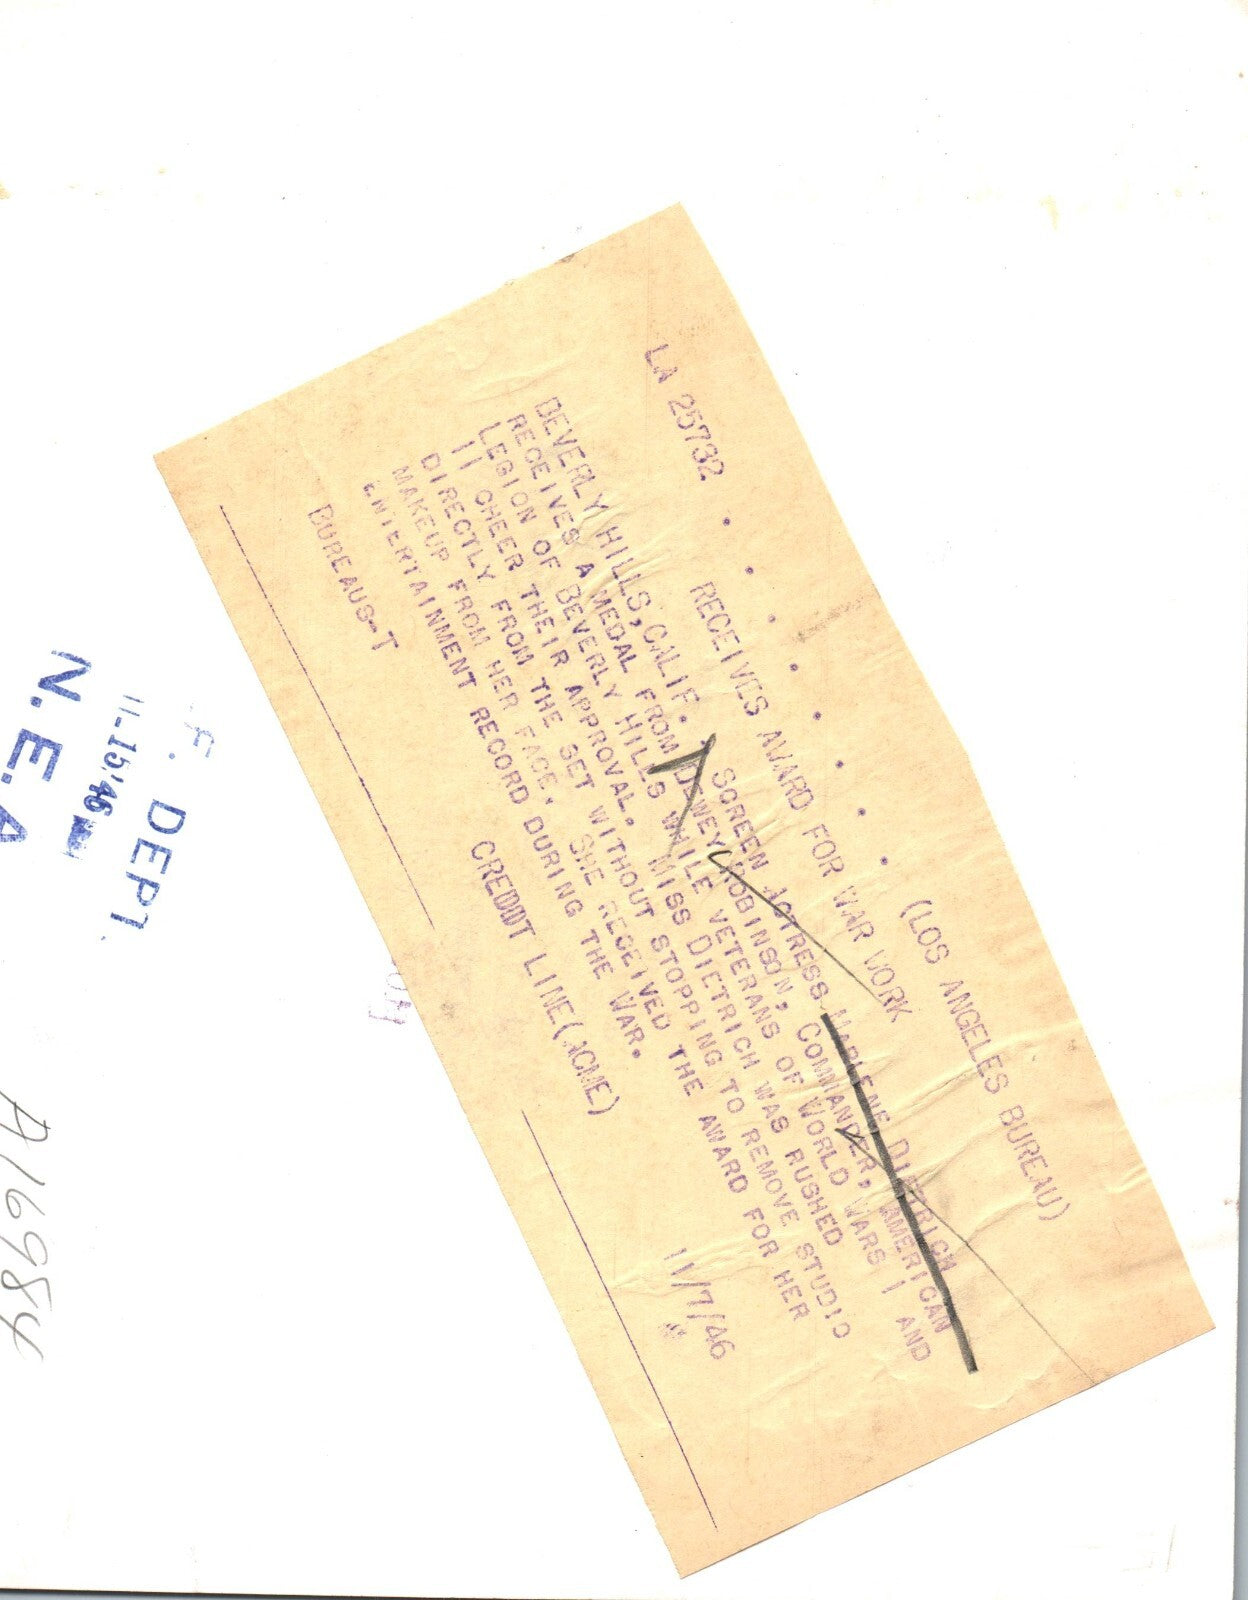 LA 25732 . . . . . . . . (LOS ANGELES BUREAU)
RECEIVES AWARD FOR WAR WORK
BEVERLY HILLS, CALIF. . SCREEN ACTRESS MARLENE DIETRICH
RECEIVES A MEDAL FROM DEWEY ROBINSON, COMMANDER, AMERICAN
LEGION OF BEVERLY HILLS WHILE VETERANS OF WORLD WARS I AND
II CHEER THEIR APPROVAL. MISS DIETRICH WAS RUSHED
DIRECTLY FROM THE SET WITHOUT STOPPING TO REMOVE STUDIO
MAKEUP FROM HER FACE. SHE RECEIVED THE AWARD FOR HER
ENTERTAINMENT RECORD DURING THE WAR.
BUREAUS-T CREDIT LINE (ACME) 11/7/46
F. DEPT.
11-15-46
N.E.A
A16984